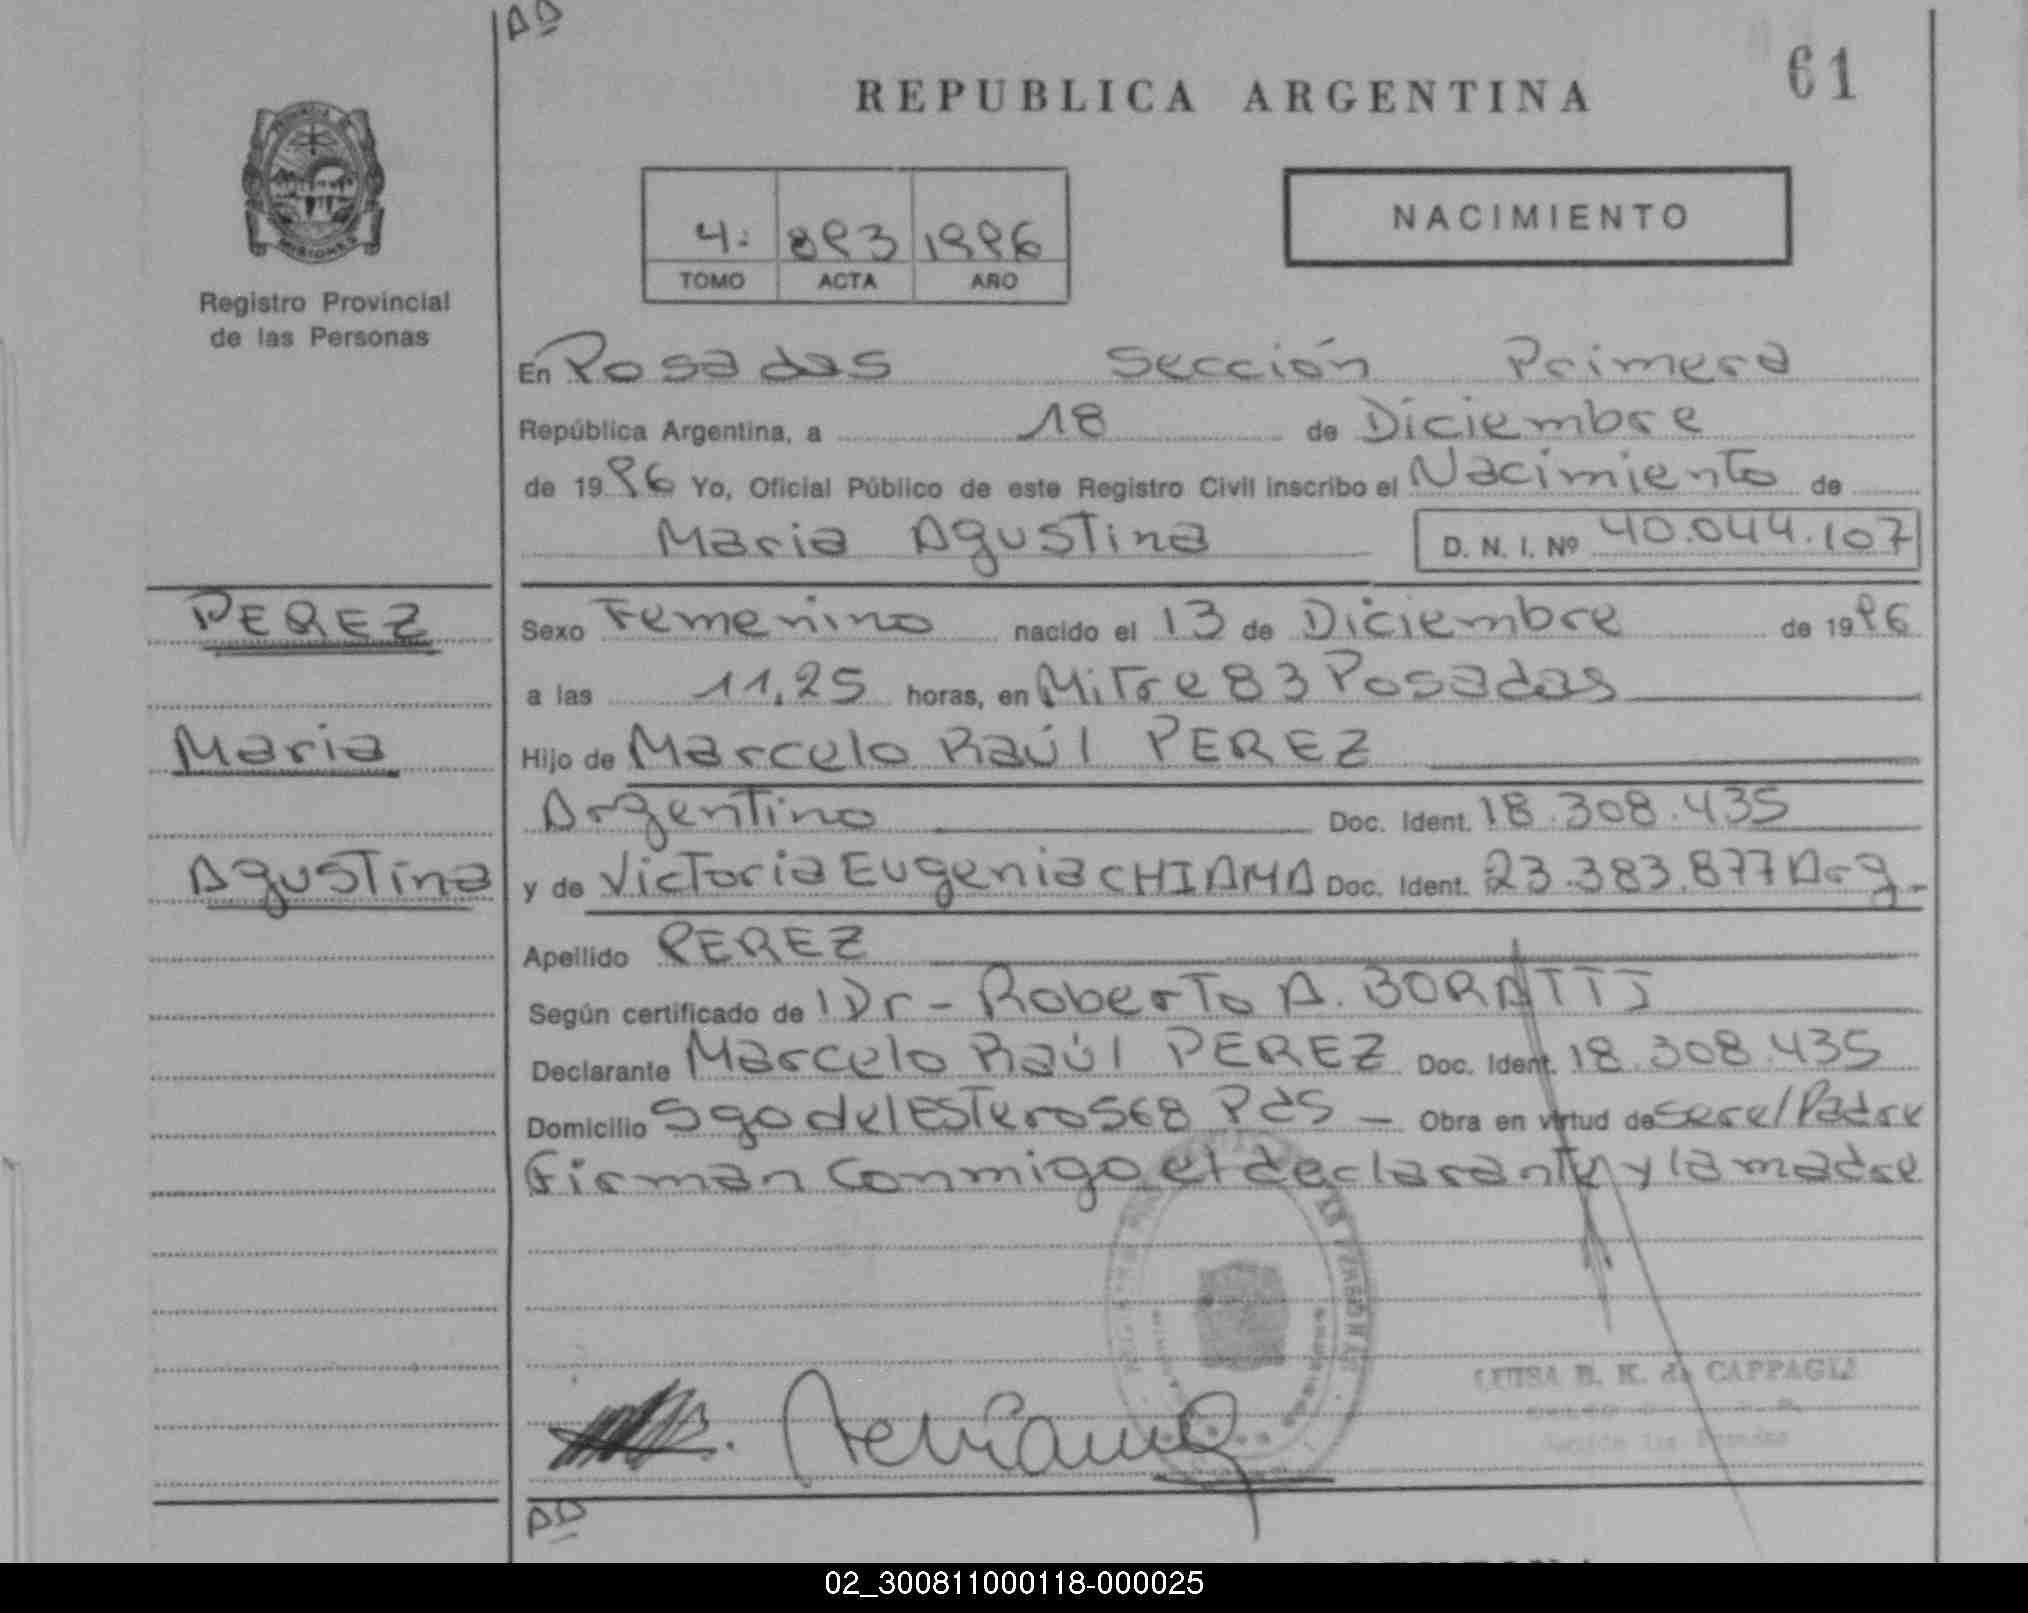 AD
61
REPUBLICA ARGENTINA
MISIONES
Registro Provincial
de las Personas
4: 893 1996
TOMO ACTA AÑO
NACIMIENTO
En Posadas Sección Primera
República Argentina, a 18 de Diciembre
de 1996 Yo, Oficial Público de este Registro Civil inscribo el Nacimiento de
Maria Agustina D. N. I. Nº 40.044.107
PEREZ
Maria
Agustina
Sexo Femenino nacido el 13 de Diciembre de 1996
a las 11,25 horas, en Mitre 83 Posadas
Hijo de Marcelo Raúl PEREZ
Argentino Doc. Ident. 18.308.435
y de Victoria Eugenia Doc. Ident. 23.383.877 Arg.
Apellido PEREZ
Según certificado de Dr - Roberto A. BORATTI
Declarante Marcelo Raúl PEREZ Doc. Ident. 18.308.435
Domicilio Sgo del Estero 568 Pds - Obra en virtud de ser el Padre
Firman conmigo el declarante y la madre
LUISA B. K. de CAPPAGLI
AD
02_300811000118-000025